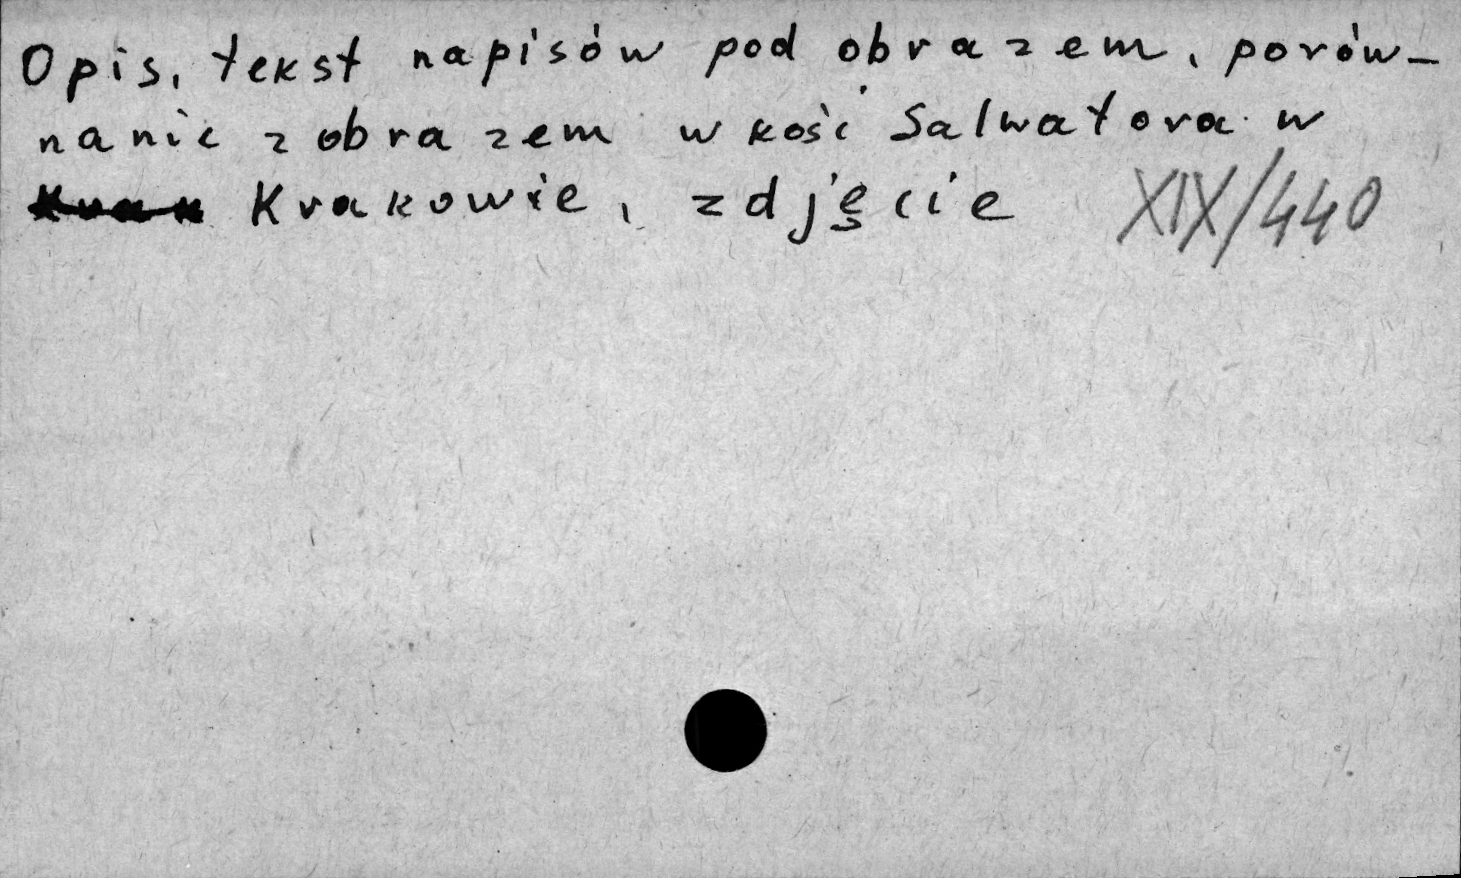 Opis, tekst napisów pod obrazem, porów-
nanie z obrazem w kość Salwatora w
Krakowie, zdjęcie XIX/440